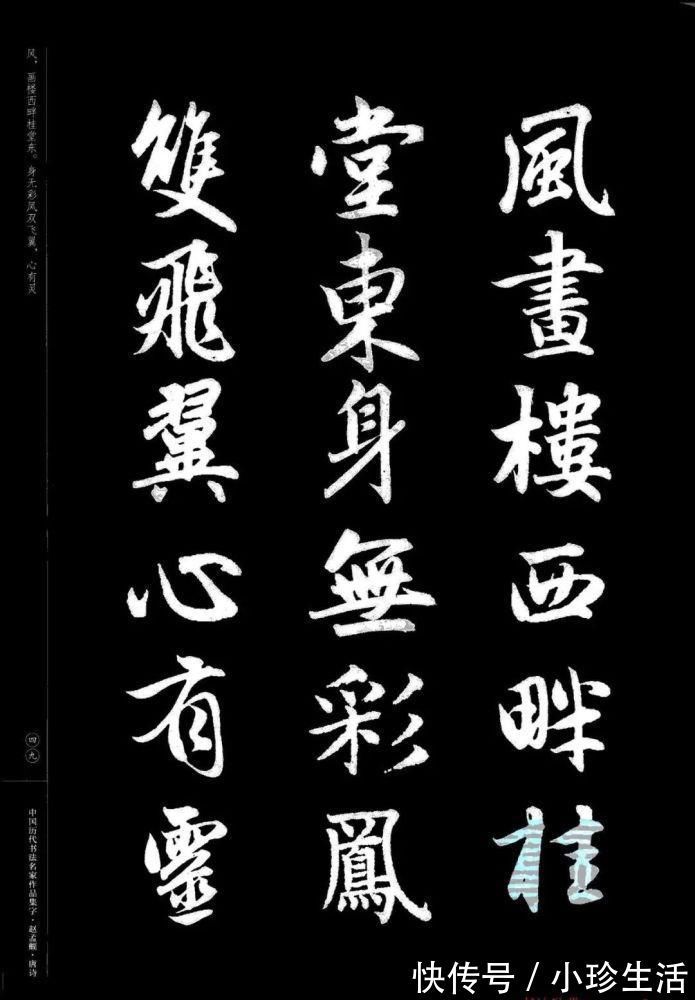 風畫樓西畔桂
堂東身無彩鳳
雙飛翼心有靈
风，画楼西畔桂堂东。身无彩凤双飞翼，心有灵
四九
中国历代书法名家作品集字·赵孟頫·唐诗
快传号／小珍生活